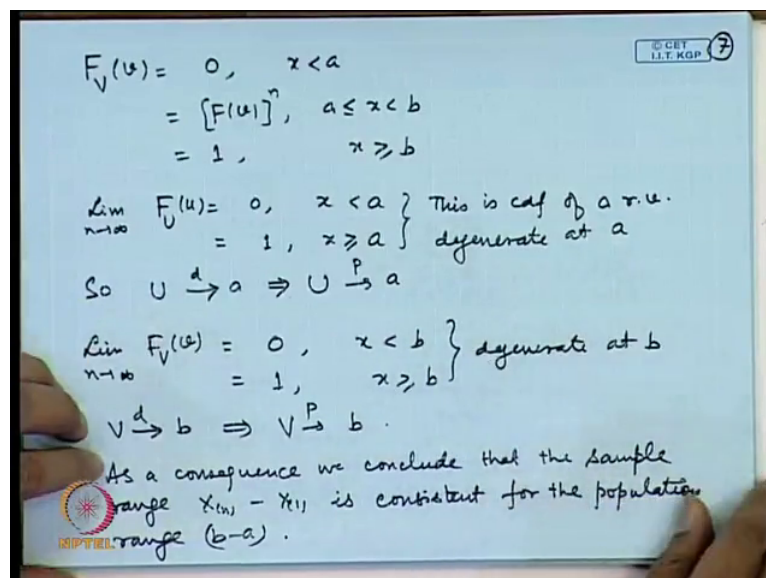 © CET
I.I.T. KGP
7
F_V(v) = 0, x < a
= [F(v)]^n, a ≤ x < b
= 1, x ≥ b
Lim n→∞ F_U(u) = 0, x < a } This is cdf of a r.v.
= 1, x ≥ a } degenerate at a
So U →^d a ⇒ U →^P a
Lim n→∞ F_V(v) = 0, x < b } degenerate at b
= 1, x ≥ b }
V →^d b ⇒ V →^P b.
As a consequence we conclude that the sample
range X_(n) - X_(1) is consistent for the population
range (b-a).
NPTEL